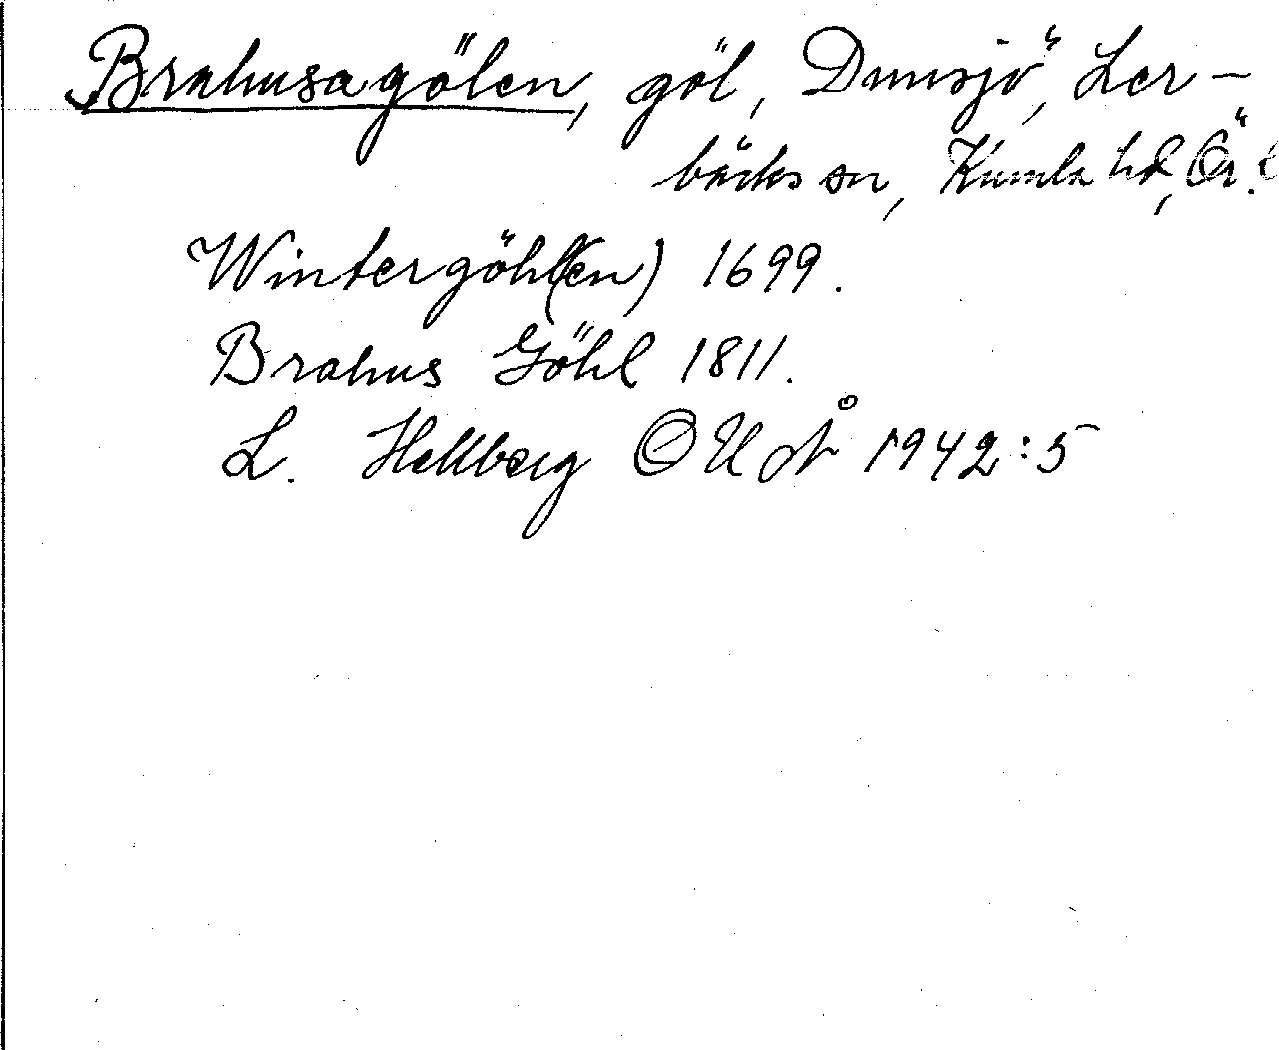 Brahusagölen, göl, Dunsjö, Ler-
bäcks sn, Kumla hd, Ör. l
Wintergöhl(en) 1699.
Brahus Göhl 1811.
L. Hellberg OUÅ 1942:5